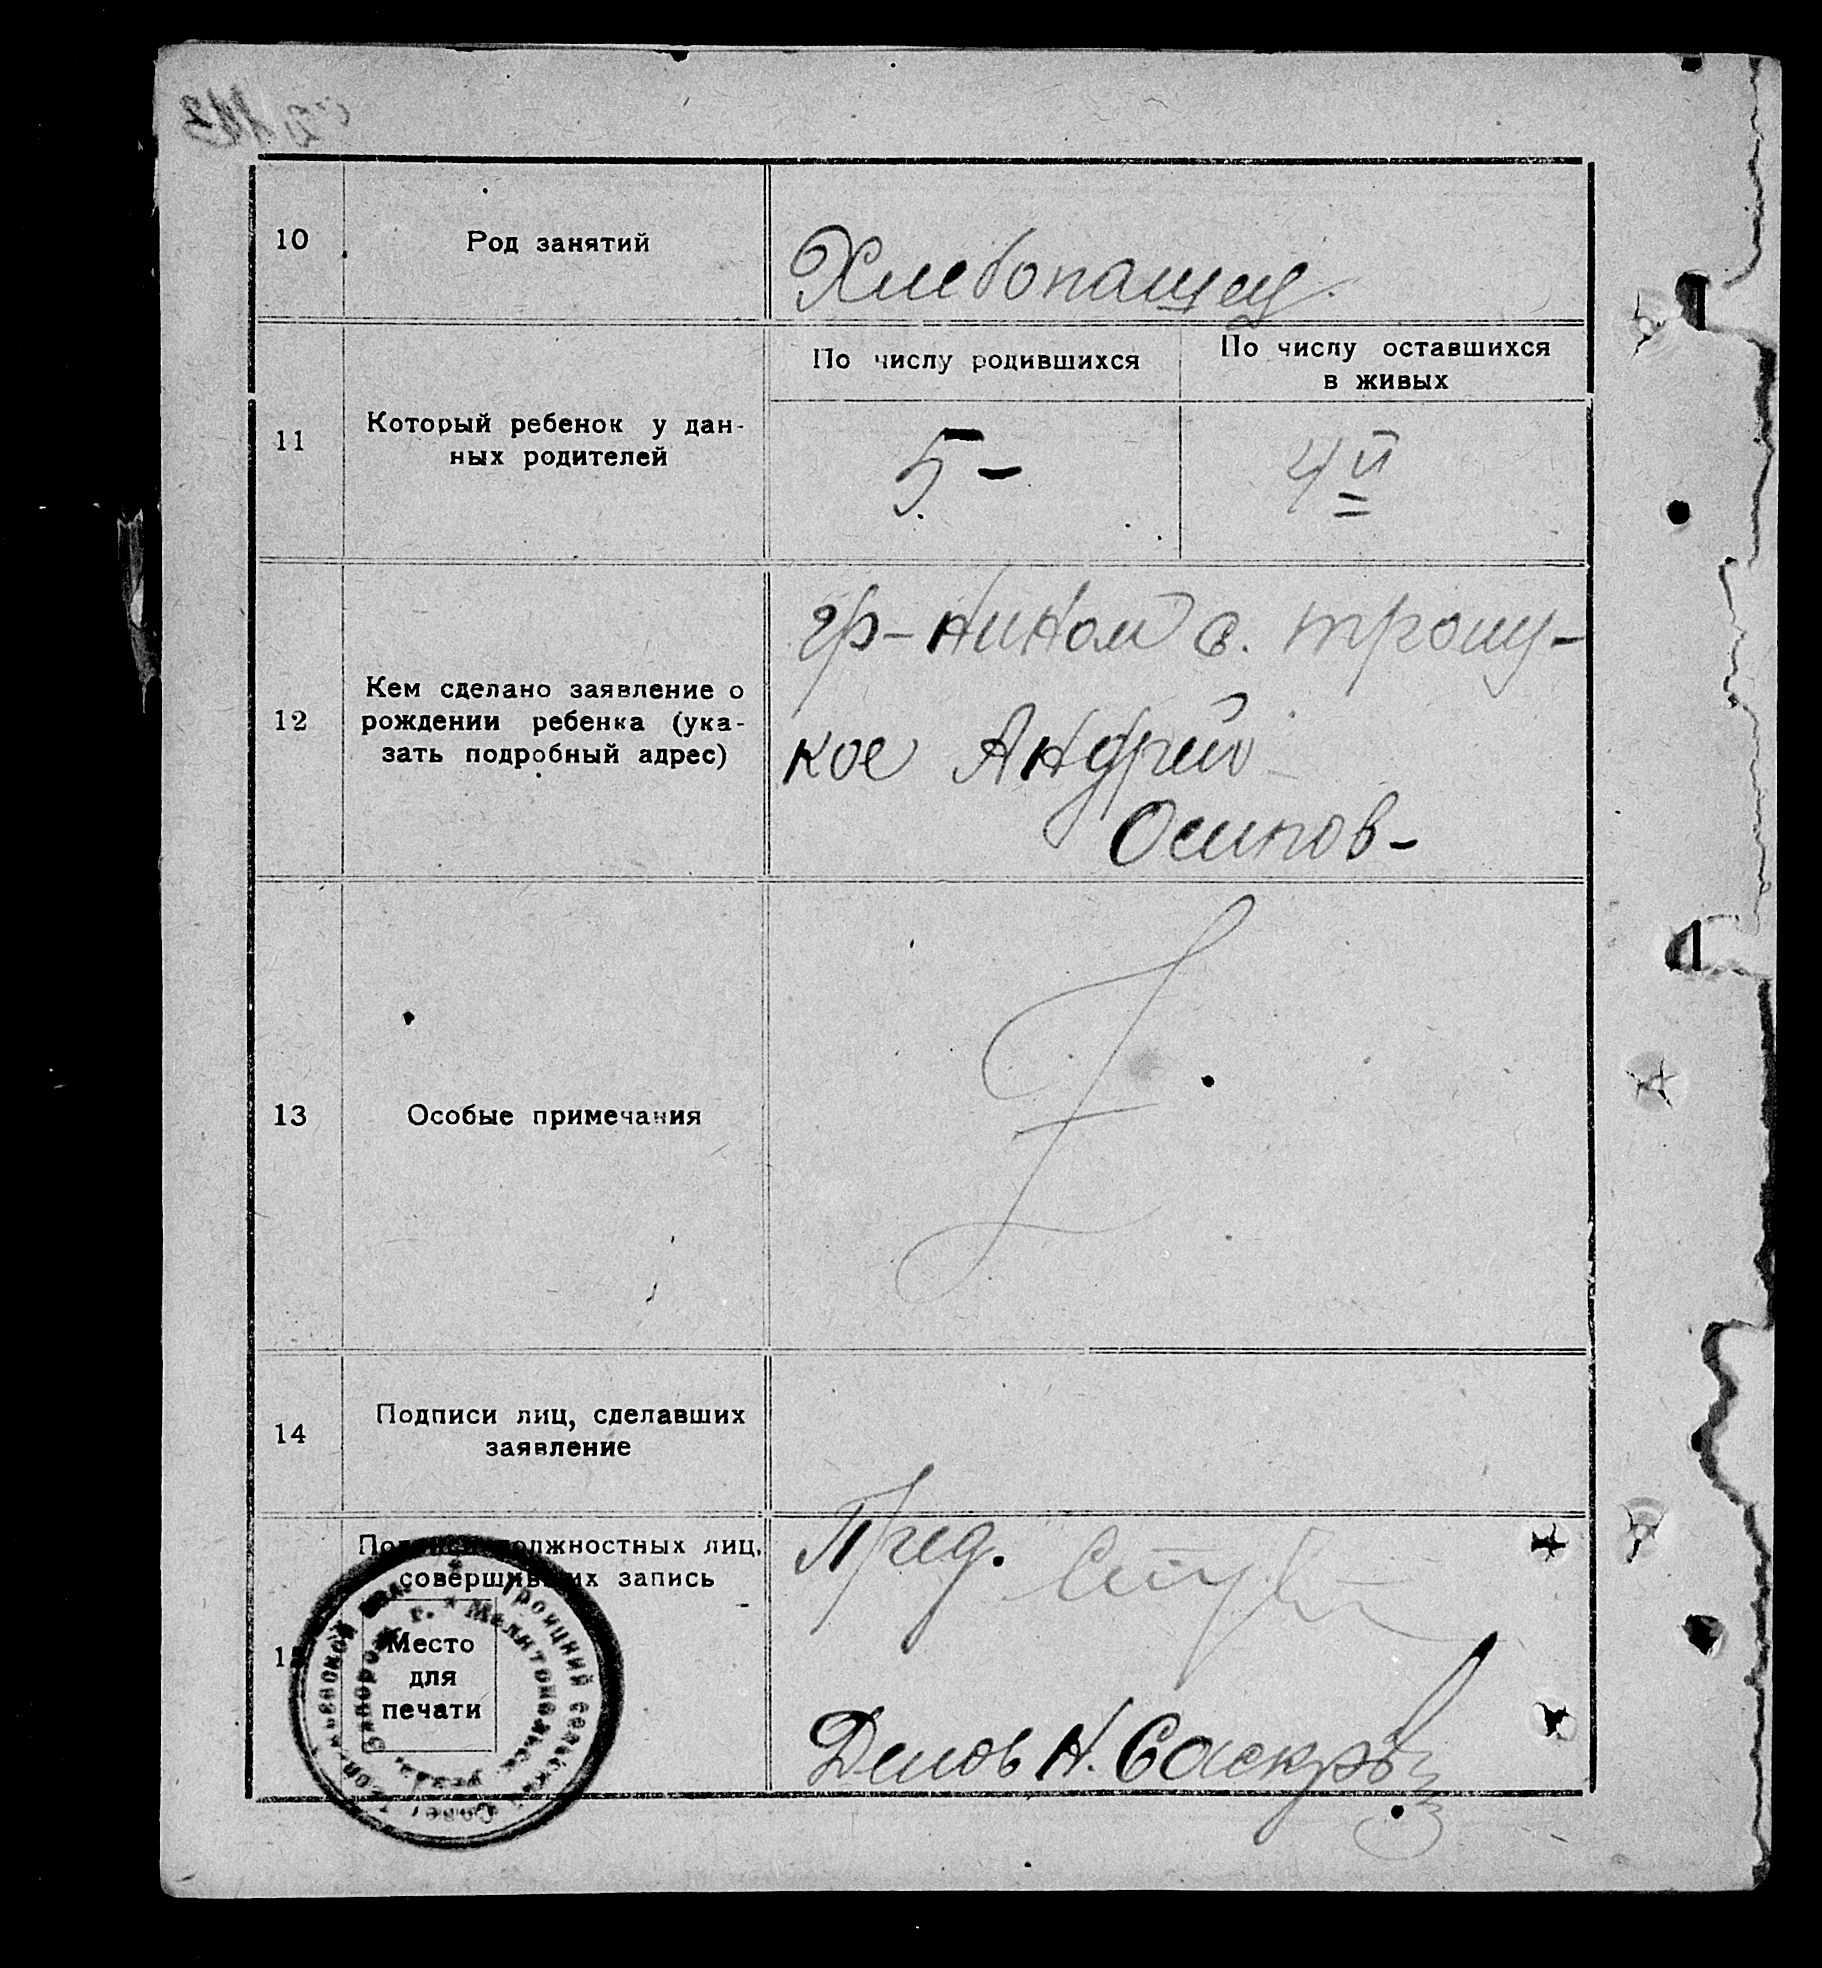 10
Род занятий
Хлебопащец.
11
Который ребенок у дан-
ных родителей
По числу родившихся
По числу оставшихся
в живых
5 -
4й
12
Кем сделано заявление о
рождении ребенка (ука-
зать подробный адрес)
гр-нином с. троиц-
кое Андрей
Осипов-
13
Особые примечания
14
Подписи лиц, сделавших
заявление
должностных лиц,
совершивших запись
Место
для
печати
Троицкий сельский Совет
Запорож. г. * Мелитопольск. уезда
Пред.
Делов Н.